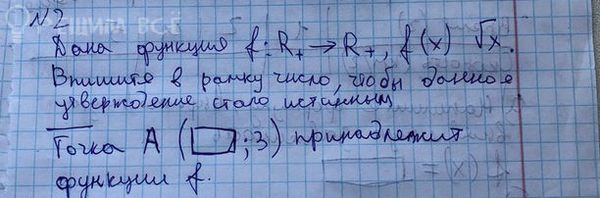 РЕШИЛА ВСЁ
№2
Дана функция f: R₊ → R₊, f(x) √x.
Впишите в рамку число, чтобы данное
утверждение стало истинным
Точка А (☐; 3) принадлежит
функции f.